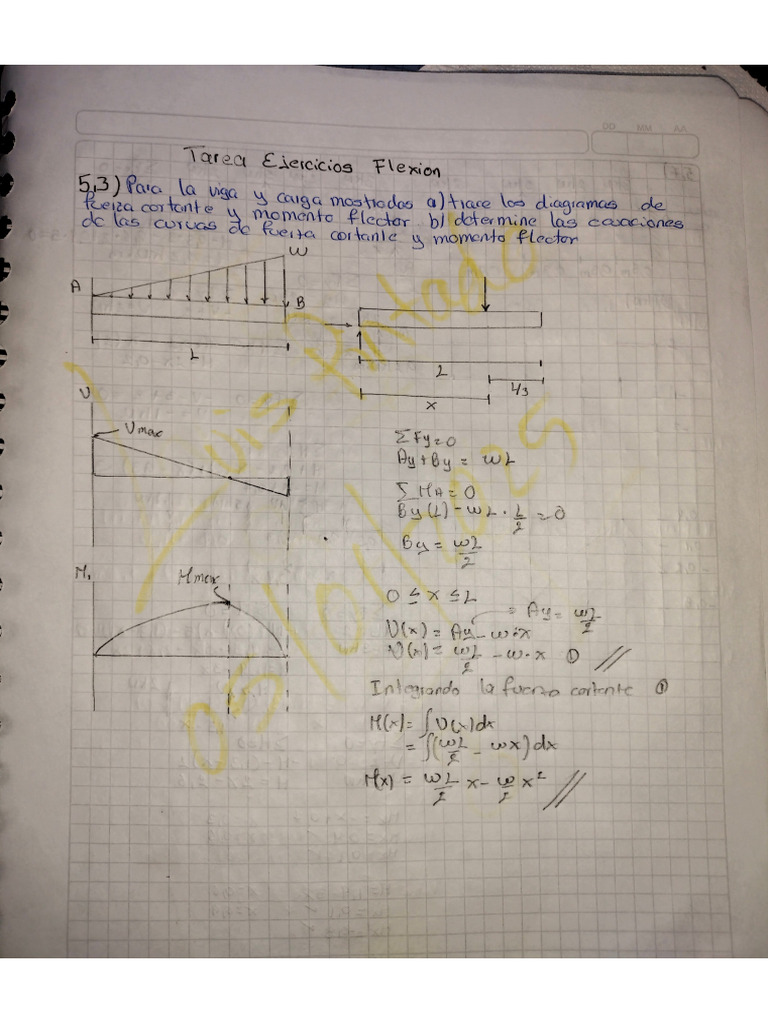 Tarea Ejercicios Flexion
5.3) Para la viga y carga mostrados a) trace los diagramas de
fuerza cortante y momento flector. b) determine las ecuaciones
de las curvas de fuerza cortante y momento flector
W
A
B
L
L
L/3
x
V
Vmax
ΣFy=0
Ay+By = wL
ΣMA=0
By(L)-wL·L/2=0
By=wL/2
M,
Mmax
0 ≤ x ≤ L
= Ay = wL/2
V(x) = Ay - w·x
V(x) = wL/2 - w·x ① //
Integrando la fuerza cortante ①
M(x)= ∫V(x)dx
= ∫(wL/2 - wx)dx
M(x) = wL/2 x - w/2 x² //
Luis Pintado
05/01/2025
AA MM DD